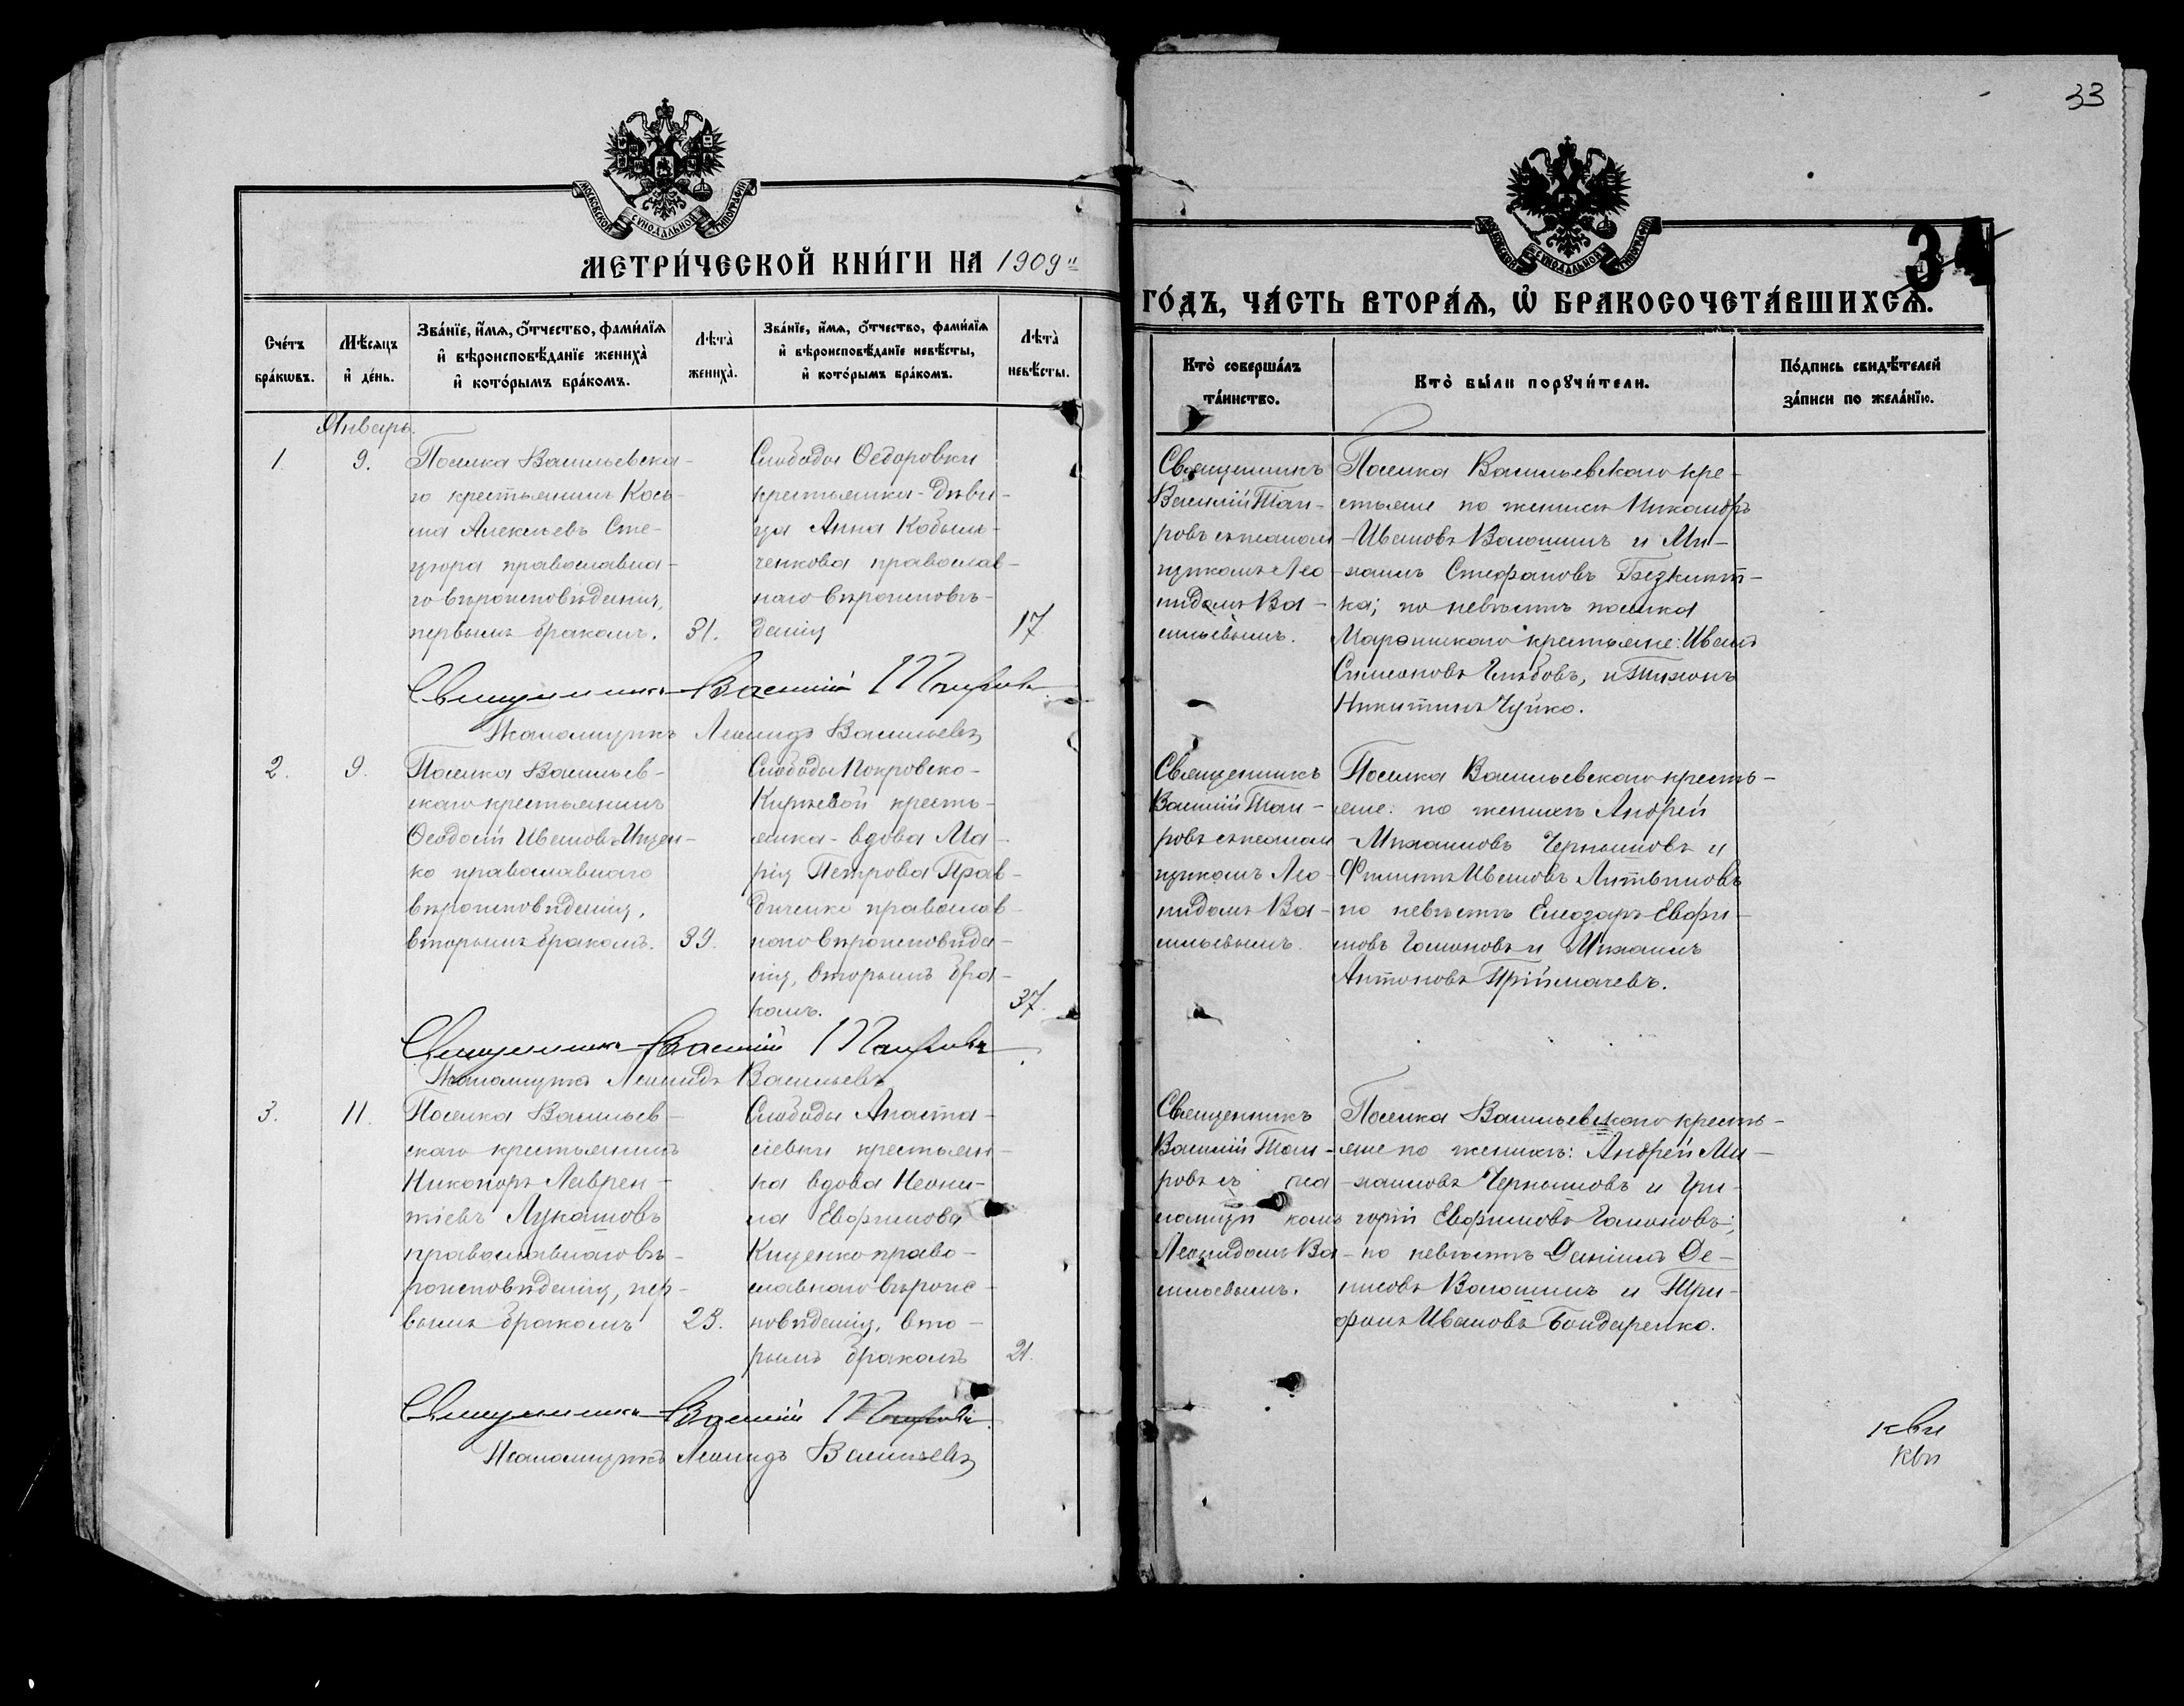 33
МОСКОВСКОЙ СѴНОДАЛЬНОЙ ТИПОГРАФІИ
МЕТРИ́ЧЕСКОЙ КНИ́ГИ НА 1909
МОСКОВСКОЙ СѴНОДАЛЬНОЙ ТИПОГРАФІИ
3
ГО́ДЪ, ЧА́СТЬ ВТОРА́Ѧ, Ѽ БРАКОСОЧЕТА́ВШИХСѦ.
Сче́тъ бра́кѡвъ.
Мѣ́сѧцъ и҆ де́нь.
Зва́нїе, и҆́мѧ, ѻ҆́тчество, фами́лїѧ
и҆ вѣроисповѣ́данїе жениха̀
и҆ кото́рымъ бра́комъ.
Лѣта̀ жениха̀.
Зва́нїе, и҆́мѧ, ѻ҆́тчество, фами́лїѧ
и҆ вѣроисповѣ́данїе невѣ́сты,
и҆ кото́рымъ бра́комъ.
Лѣта̀ невѣ́сты.
Кто̀ соверша́лъ та́инство.
Кто̀ бы́ли порꙋчи́тели.
По́дпись свидѣ́телей
за́писи по жела́нїю.
Январь.
1.
9.
Поселка Васильевска-
го крестьянинъ Кось-
ма Алексѣевъ Сте-
цюра православна-
го вѣроисповѣданія,
первымъ бракомъ.
31.
Слободы Ѳедоровки
крестьянка-дѣви-
ца Анна Кобыль-
ченкова православ-
наго вѣроисповѣ-
данія
17
Священникъ
Василій Таи-
ровъ съ псалом
щикомъ Лео-
нидомъ Ва-
сильевымъ.
Поселка Васильевскаго кре-
стьяне по женихѣ Никаноръ
Ивановъ Волошинъ и Ми-
хаилъ Стефановъ
по невѣстѣ поселка
крестьяне: Иванъ
Симоновъ Глѣбовъ, и Тихонъ
Никитинъ Чуйко.
Священникъ Василій Таировъ
Псаломщикъ Леонидъ Васильевъ
2.
9.
Поселка Васильев-
скаго крестьянинъ
Ѳеодосій Ивановъ Ищен-
ко православнаго
вѣроисповѣданія,
вторымъ бракомъ.
39.
Слободы Покровско-
Кирѣевой кресть-
янка-вдова Ма-
рія Петрова Прав-
диченко православ-
наго вѣроисповѣда-
нія, вторымъ бра-
комъ.
37.
Священникъ
Василій Таи-
ровъ съ псалом
щикомъ Лео-
нидомъ Ва-
сильевымъ.
Поселка Васильевскаго кресть-
яне: по женихѣ Андрей
Михаиловъ Чернышовъ и
Филиппъ Ивановъ Литвиновъ
по невѣстѣ Елеазаръ Евфи-
мовъ Гамоновъ и Михаилъ
Антоновъ Пріймачевъ.
Священникъ Василій Таировъ
Псаломщикъ Леонидъ Васильевъ
3.
11.
Поселка Васильев-
скаго крестьянинъ
Никаноръ Лаврен-
тіевъ Лукашовъ
православнаго вѣ-
роисповѣданія, пер-
вымъ бракомъ
23.
Слободы Анаста-
сіевки крестьян-
ка вдова Неони-
ла Евфимова
Кищенко право-
славнаго вѣроис-
повѣданія, вто-
рымъ бракомъ
21.
Священникъ
Василій Таи-
ровъ съ
Леонидомъ Ва-
сильевымъ.
Поселка Васильевскаго кресть-
яне по женихѣ: Андрей Ми-
хаиловъ Чернышовъ и Гри-
горій Евфимовъ Гамоновъ;
по невѣстѣ Даніилъ Де-
нисовъ Волошинъ и Три-
фонъ Ивановъ Бондаренко.
Священникъ Василій Таировъ
Псаломщикъ Леонидъ Васильевъ